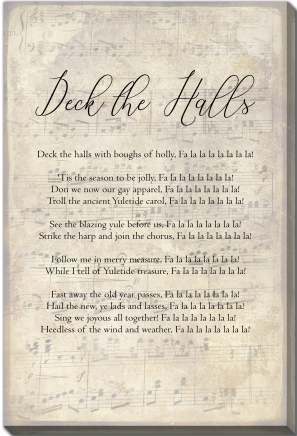 Deck the Halls
Deck the halls with boughs of holly, Fa la la la la la la la!
'Tis the season to be jolly, Fa la la la la la la la!
Don we now our gay apparel, Fa la la la la la la la!
Troll the ancient Yuletide carol, Fa la la la la la la la!
See the blazing yule before us, Fa la la la la la la la!
Strike the harp and join the chorus, Fa la la la la la la la!
Follow me in merry measure, Fa la la la la la la la!
While I tell of Yuletide measure, Fa la la la la la la la!
Fast away the old year passes, Fa la la la la la la la!
Hail the new, ye lads and lasses, Fa la la la la la la la!
Sing we joyous all together! Fa la la la la la la la!
Heedless of the wind and weather, Fa la la la la la la la!